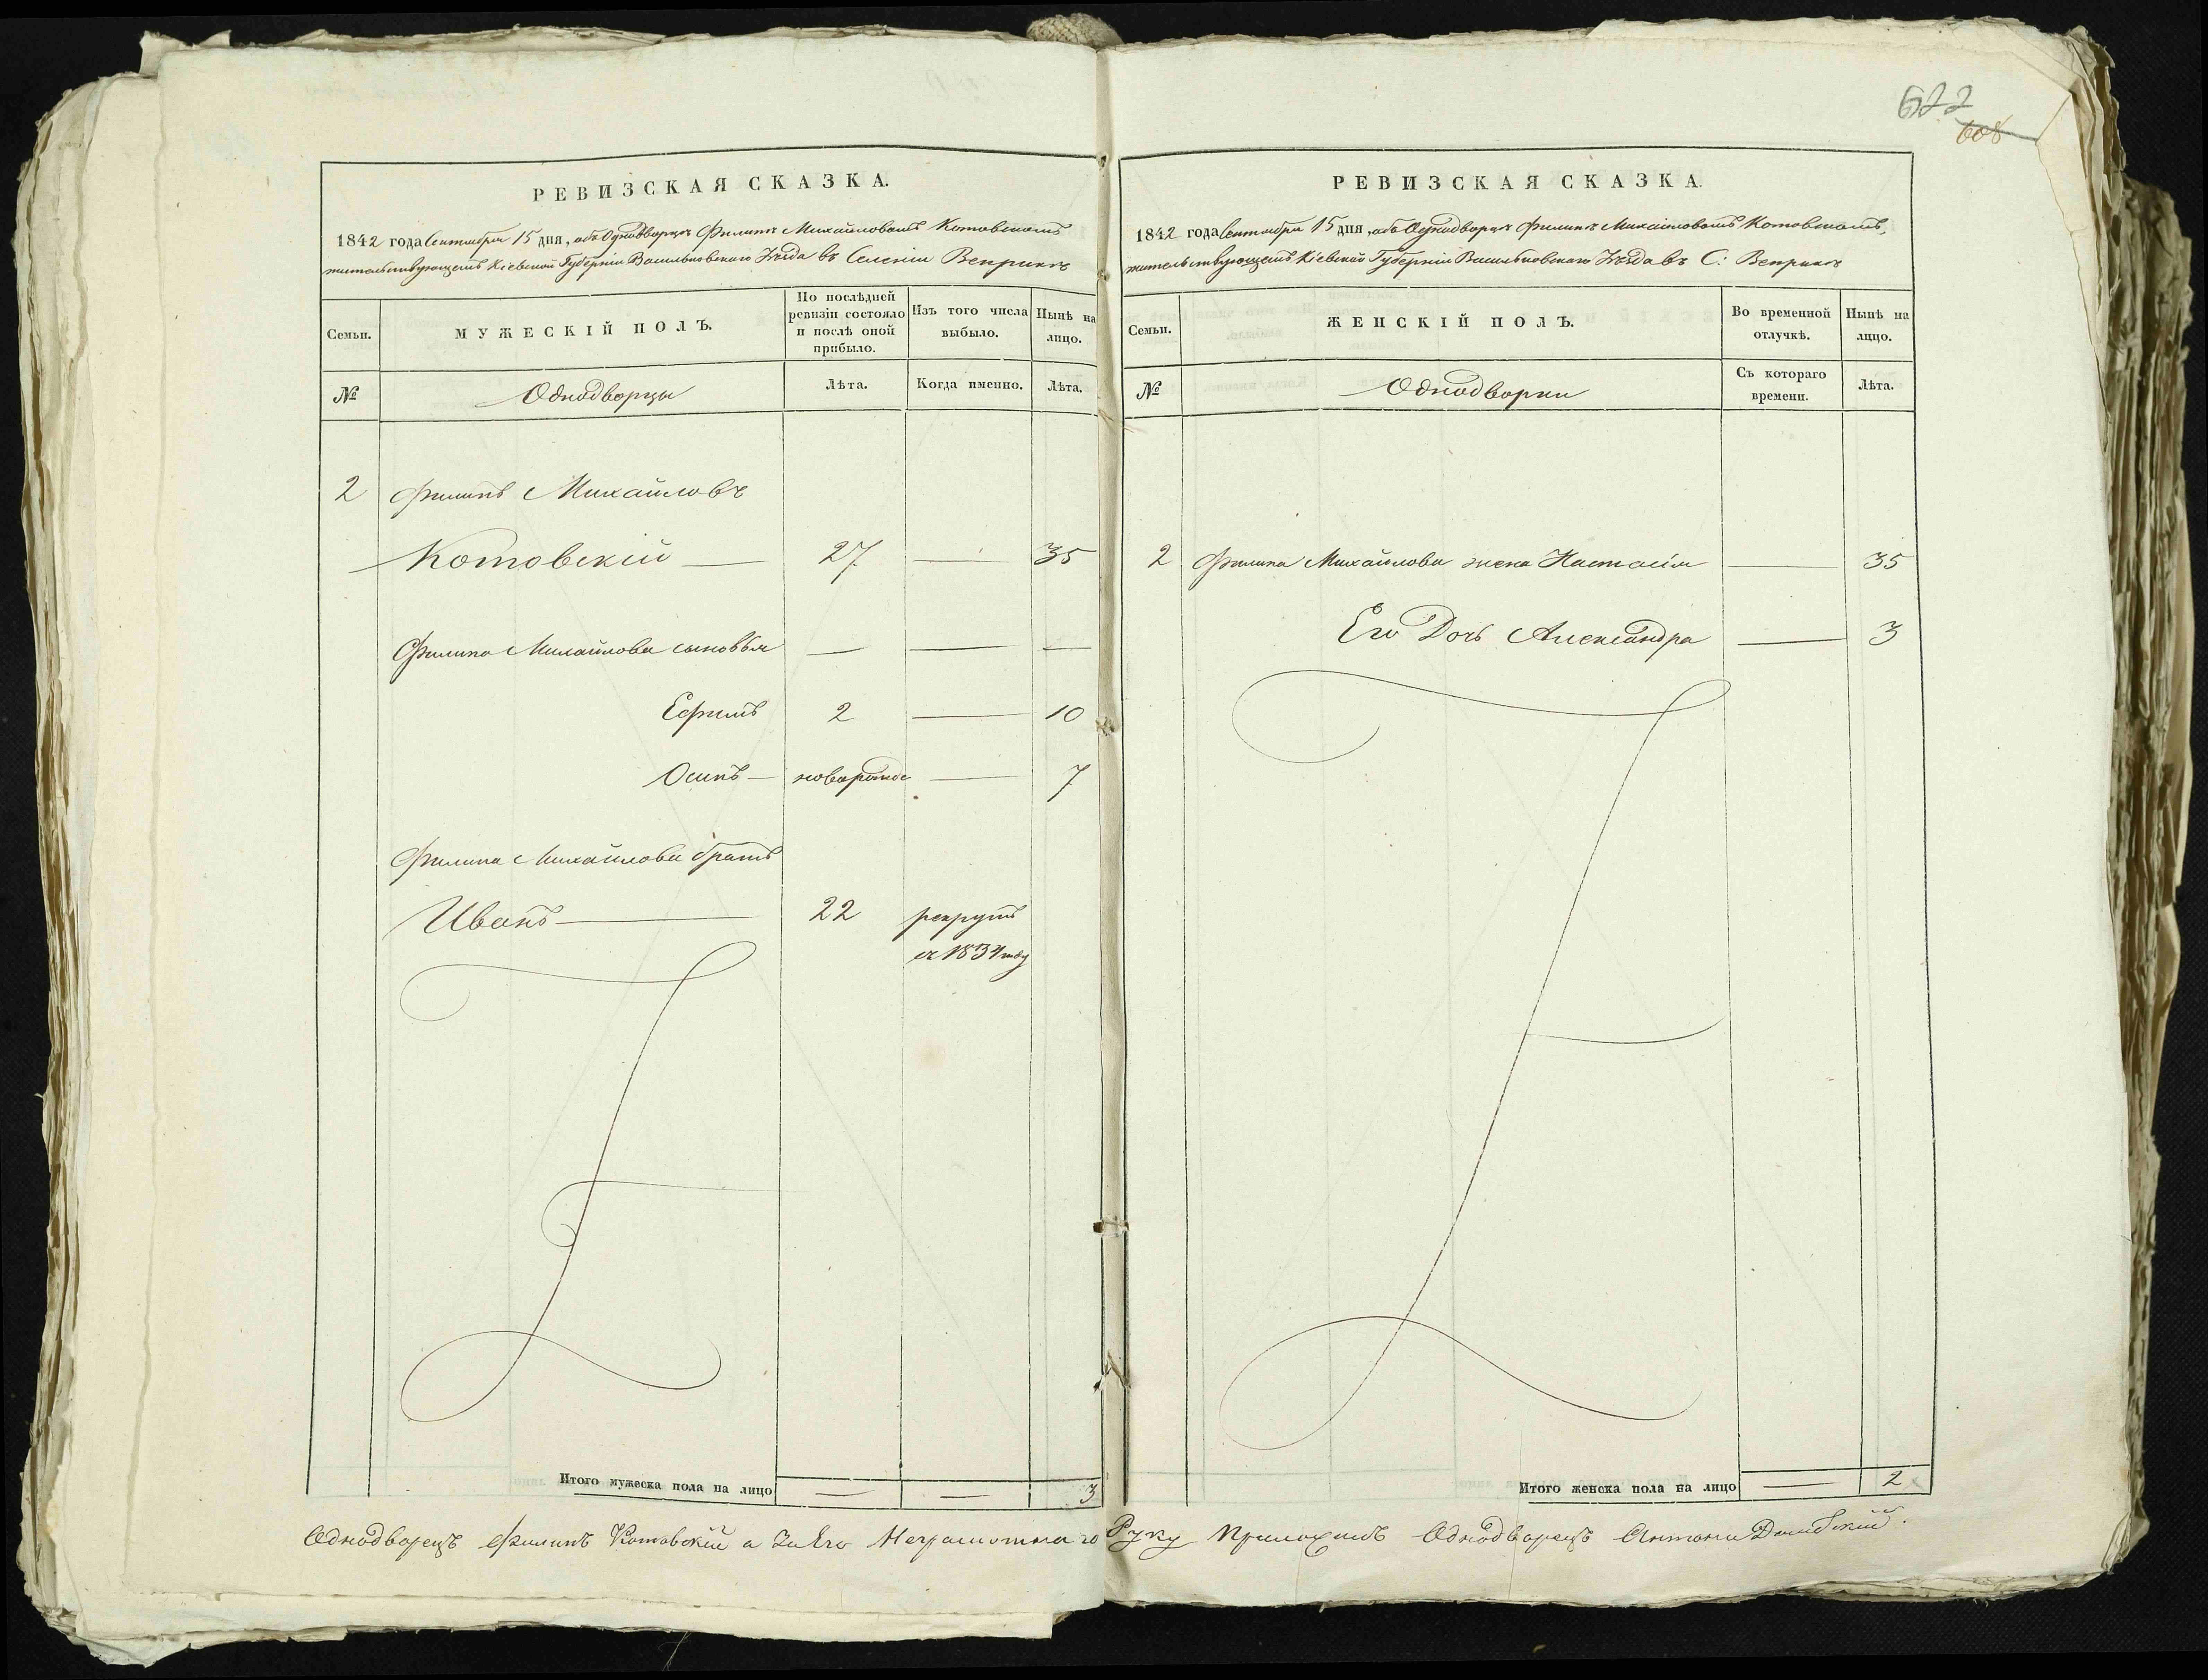 622
608
РЕВИЗСКАЯ СКАЗКА.
1842 года Сентября 15 дня, объ Однодворцѣ Филипѣ Михайловомъ Котовскомъ
жительствующемъ Кіевской Губерніи Васильковскаго Уѣзда въ Селеніи Веприкѣ
Семьи.
МУЖЕСКІЙ ПОЛЪ.
По послѣдней ревизіи состояло и послѣ оной прибыло.
Изъ того числа выбыло.
Нынѣ на лицо.
№
Однодворцы
Лѣта.
Когда именно.
Лѣта.
2 Филипъ Михайловъ
Котовскій — 27 — 35
Филипа Михайлова сыновья — — —
Ефимъ 2 — 10
Осипъ — новорожде — 7
Филипа Михайлова братъ
Иванъ — 22 рекрутъ
въ 1834 году
Итого мужеска пола на лицо — — 3
РЕВИЗСКАЯ СКАЗКА.
1842 года Сентября 15 дня, объ Однодворцѣ Филипѣ Михайловомъ Котовскомъ,
жительствующемъ Кіевской Губерніи Васильковскаго Уѣзда въ С: Веприкѣ
Семьи.
ЖЕНСКІЙ ПОЛЪ.
Во временной отлучкѣ.
Нынѣ на лицо.
№
Однодворки
Съ котораго времени.
Лѣта.
2 Филипа Михайлова жена Настасія — 35
Его Дочь Александра — 3
Итого женска пола на лицо — 2
Однодворецъ Филипъ Котовскій а За Его Неграмотнаго Руку Приложилъ Однодворецъ Антони